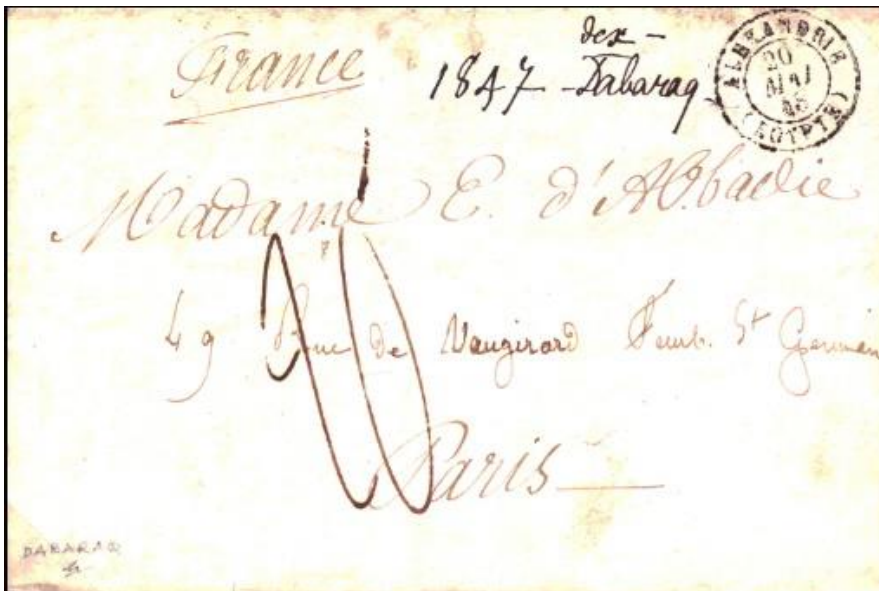 France
1847 Dabaraq
ALEXANDRIE
20
MAI
(EGYPTE)
Madame E. d'Abbadie
49 Rue de Vaugirard Faub. St Germain
Paris
DABARAQ